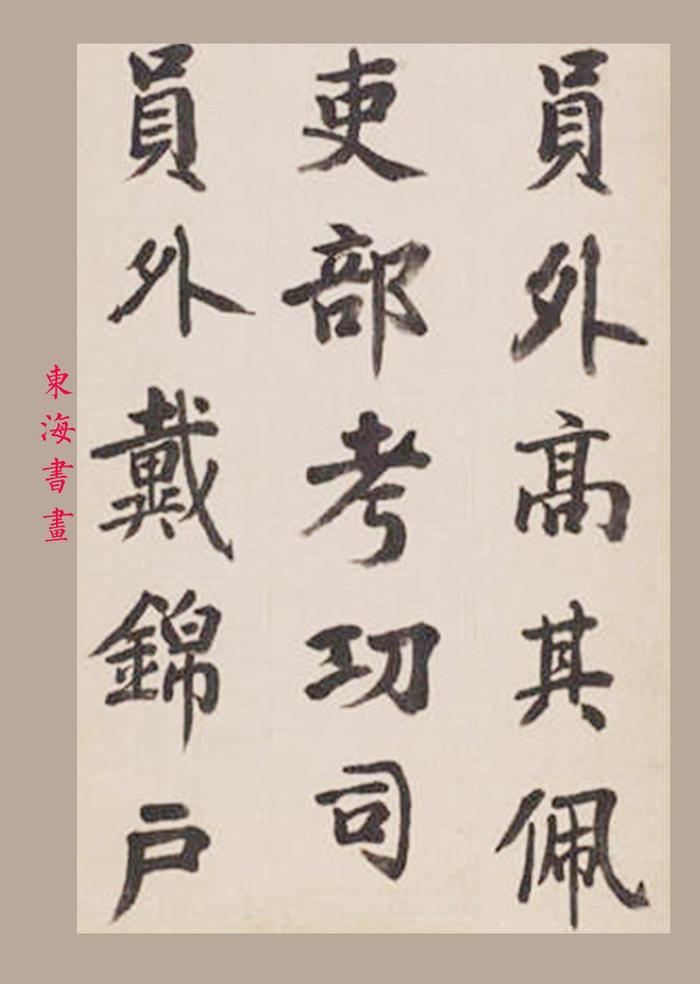 員外高其佩
吏部考功司
員外戴錦户
東海書畫